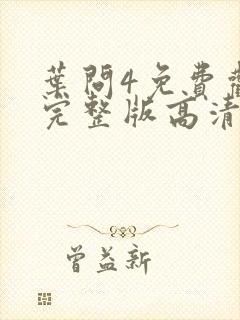 葉問4免費
完整版高清
曾益新